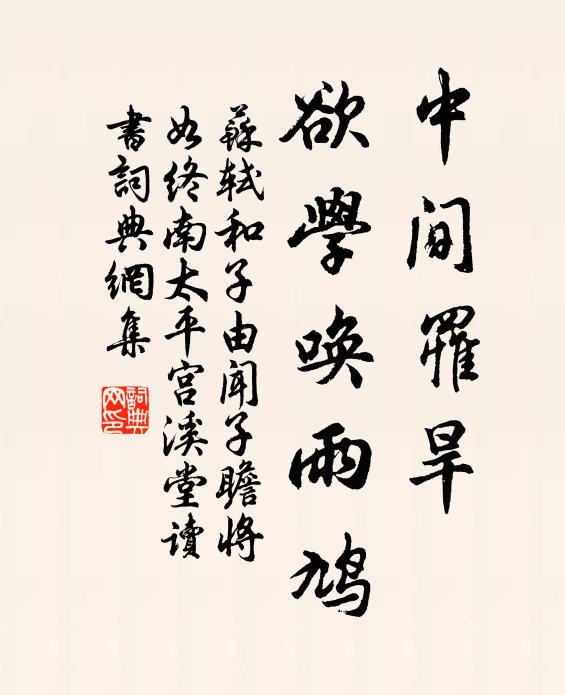 中間罹旱
欲學喚雨鳩
蘇軾和子由聞子瞻將
如終南太平宮溪堂讀
書詞典網集
詞典
网印